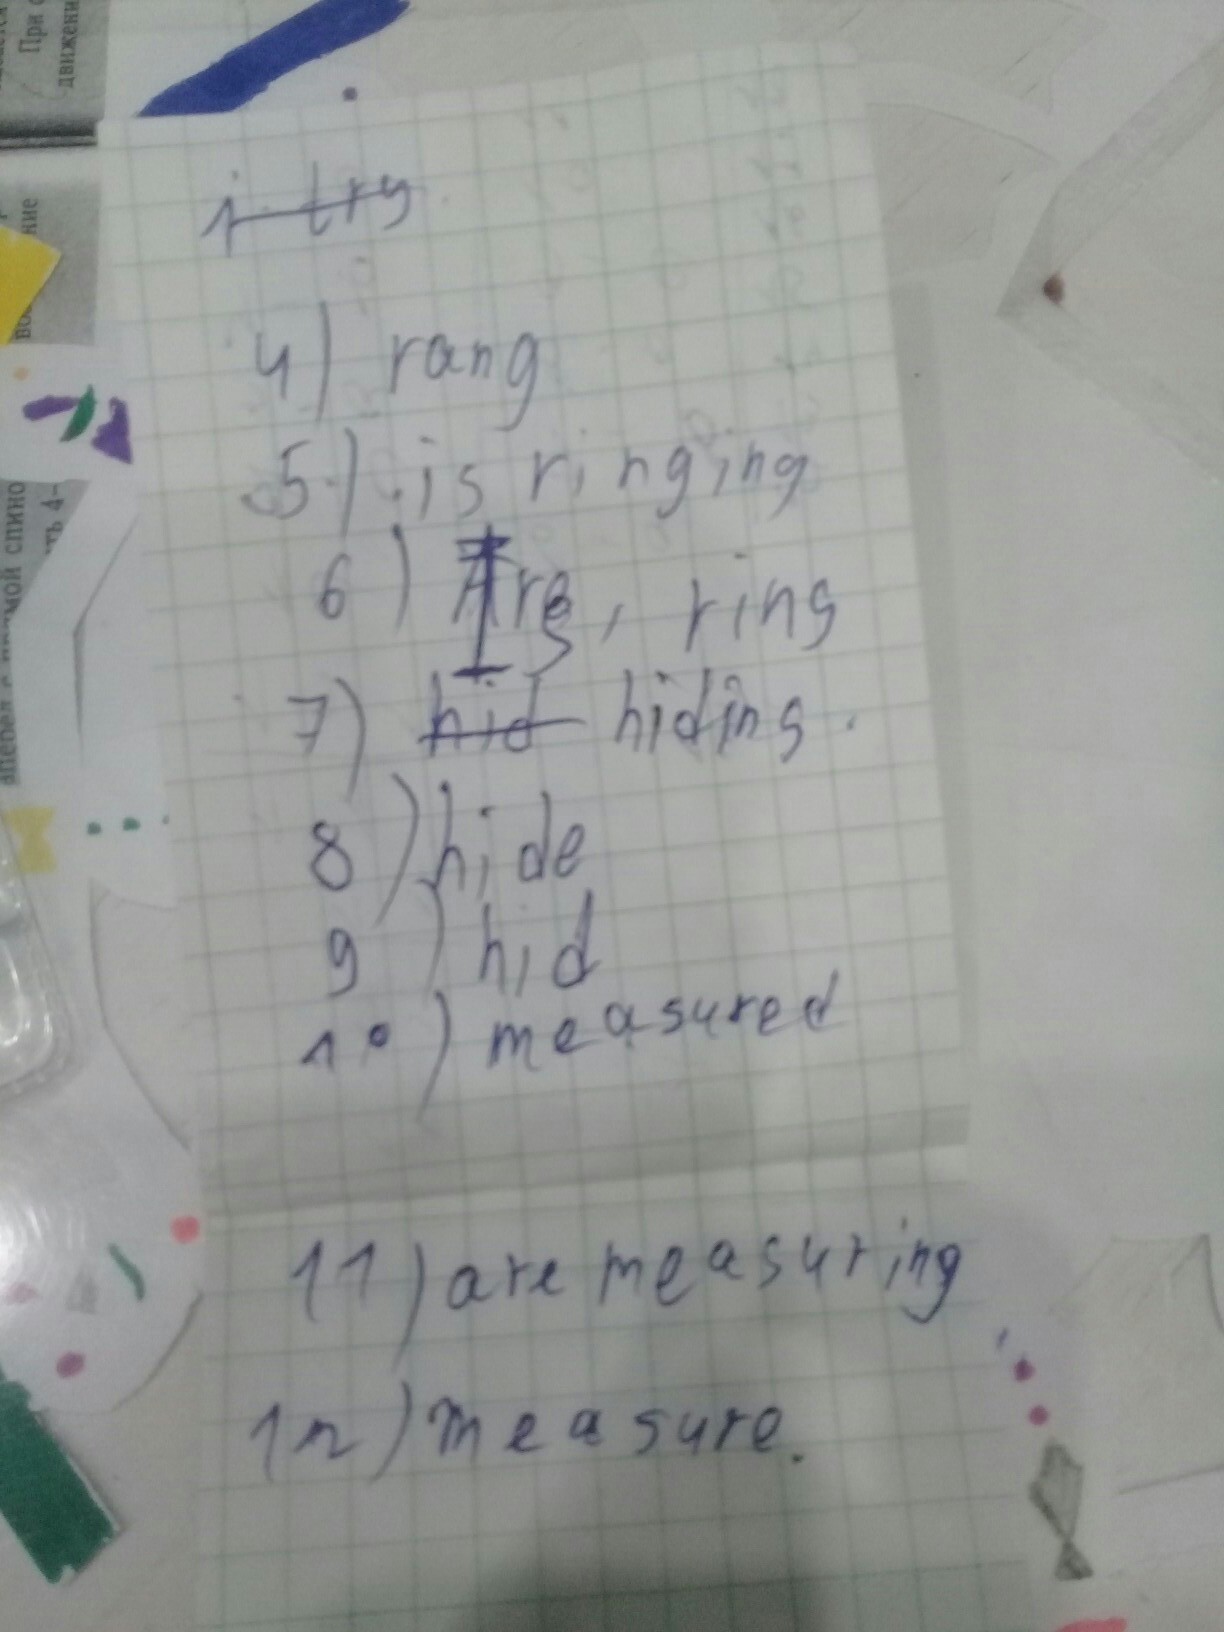 При с
движени
ние
мой спино
ть 4-
1. try
4) rang
5) is ringing
6) Is, ring
7) hid hiding.
8) hide
9) hid
10) measured
11) are measuring
12) measure.